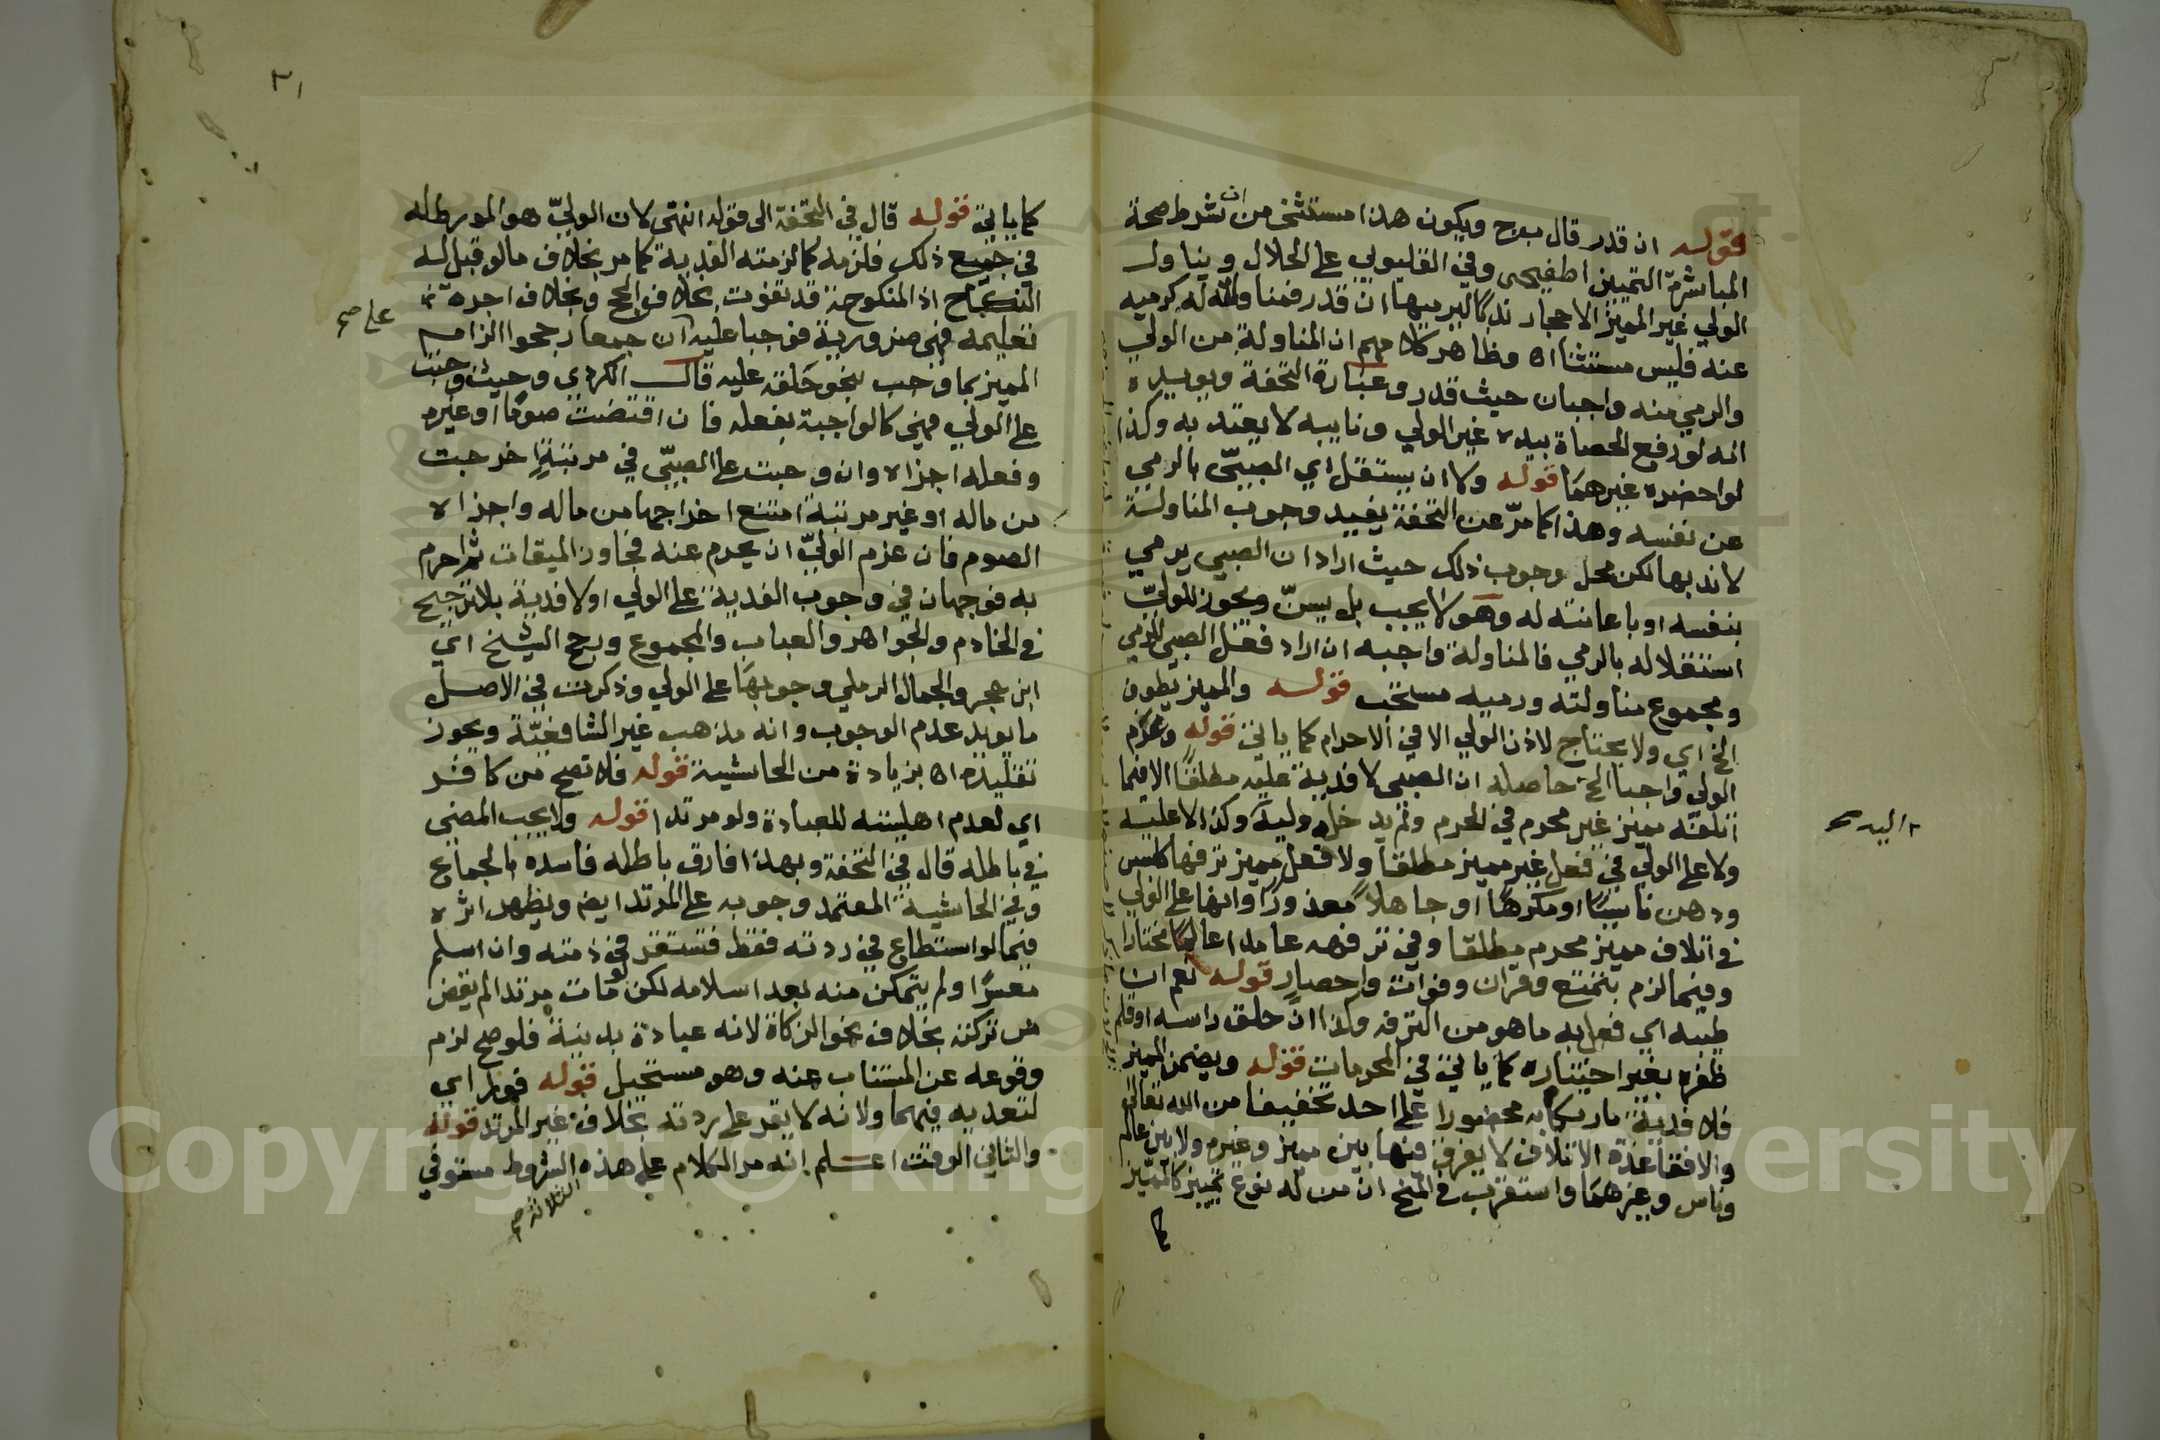 قوله ان قدر قال بعج ويكون هذا مستثنى من ان شرط صحة
المباشرة التمييز اطفيحي وفي القليوبي على الحلال ويناول
الولي غير المميز الاحجار ندبا ليرميها ان قدر فمناولته له كرميه
عنه فليس مستثنا اه وظاهر كلامهم ان المناولة من الولي
والرمي منه واجبان حيث قدر وعبارة التحفة ويويده
انه لو رفع الحصاة بيده غير الولي ونايبه لا يعتد به وكذا
لو احضره غيرهما قوله ولا ان يستقل اي الصبي بالرمي
عن نفسه وهذا كما مر عن التحفة يفيد وجوب المناولة
لا ندبها لكن محل وجوب ذلك حيث اراد ان الصبي يرمي
بنفسه او باعانته له وهو لا يجب بل يسن ويجوز للولي
استقلاله بالرمي فالمناولة واجبه ان اراد فعل الصبي للرمي
ومجموع مناولته ورميه مستحب قوله والمميز يطوف
الخ اي ولا يحتاج لاذن الولي الا في الاحرام كما ياتي قوله وغرم
الولي واجبا الخ حاصله ان الصبي لا فدية عليه مطلقا الا فيما
اتلفه مميز غير محرم في الحرم ولم يد خله وليه وكذا لا عليه
ولا على الولي في فعل غير مميز مطلقا ولا فعل مميز ترفها كلبس
ودهن ناسيا او مكرها او جاهلا معذورا وانها على الولي
في اتلاف مميز محرم مطلقا وفي ترفهه عامدا عالما مختارا
وفيما لزم بتمتع وقران وفوات واحصار قوله نعم ان
طيبه اي فعل به ما هو من الترفه وكذا ان حلق راسه او قلم
ظفره بغير اختياره كما ياتي في المحرمات قوله ويضمن المميز
فلا فدية بارتكابه محظورا على احد تخفيفا من الله تعالى
والا فقاعدة الاتلاف لا يفرق فيها بين مميز وغيره ولا بين عالم
وناس وغيرهما واستقرب في المنح ان من له نوع تمييز كالمميز
كما
اليد صح
٣١
كما ياتي قوله قال في التحفة الى قوله انتهى لان الولي هو المورط له
في جميع ذلك فلزمه كما لزمته الفدية كما مر بخلاف ما لو قبل له
النكاح اذ المنكوحة قد تفوت بخلاف الحج وبخلاف اجرة
تعليمه فهي ضرورية فوجبا عليه آن جمعا رجحوا الزام
المميز بما وجب بنحو حلقه عليه قال الكردي وحيث وجبت
على الولي فهي كالواجبة بفعله فان اقتضت صوما او غيره
وفعله اجزاه وان وجبت على الصبي في مرتبة اخرجت
من ماله او غير مرتبة امتنع اخراجها من ماله واجزاه
الصوم فان عزم الولي ان يحرم عنه فجاوز الميقات ثم احرم
به فوجهان في وجوب الفدية على الولي او لا فدية بلا ترجيح
في الخادم والجواهر والعباب والمجموع ورجح الشيخ اي
ابن حجر والجمال الرملي وجوبها على الولي وذكرت في الاصل
ما يويد عدم الوجوب وانه مذهب غير الشافعية ويجوز
تقليده اه بزيادة من الحاشية قوله فلا تصح من كافر
اي لعدم اهليته للعبادة ولو مرتدا قوله ولا يجب المضي
في باطله قال في التحفة وبهذا فارق باطله فاسده بالجماع
وفي الحاشية المعتمد وجوبه على المرتد ايضا ويظهر اثره
فيما لو استطاع في ردته فقط فتستقر في ذمته وان اسلم
معسرا ولم يتمكن منه بعد اسلامه لكن لو مات مرتدا لم يقض
من تركته بخلاف نحو الزكاة لانه عبادة بدنية فلو صح لزم
وقوعه عن المستناب عنه وهو مستحيل قوله فورا اي
لتعديه فيهما ولانه لا يقر على ردته بخلاف غير المرتد قوله
والثاني الوقت اعلم انه مر الكلام على هذه الشروط مستوفي
الثلاثة صح
على صح
Copyright © King Saud University